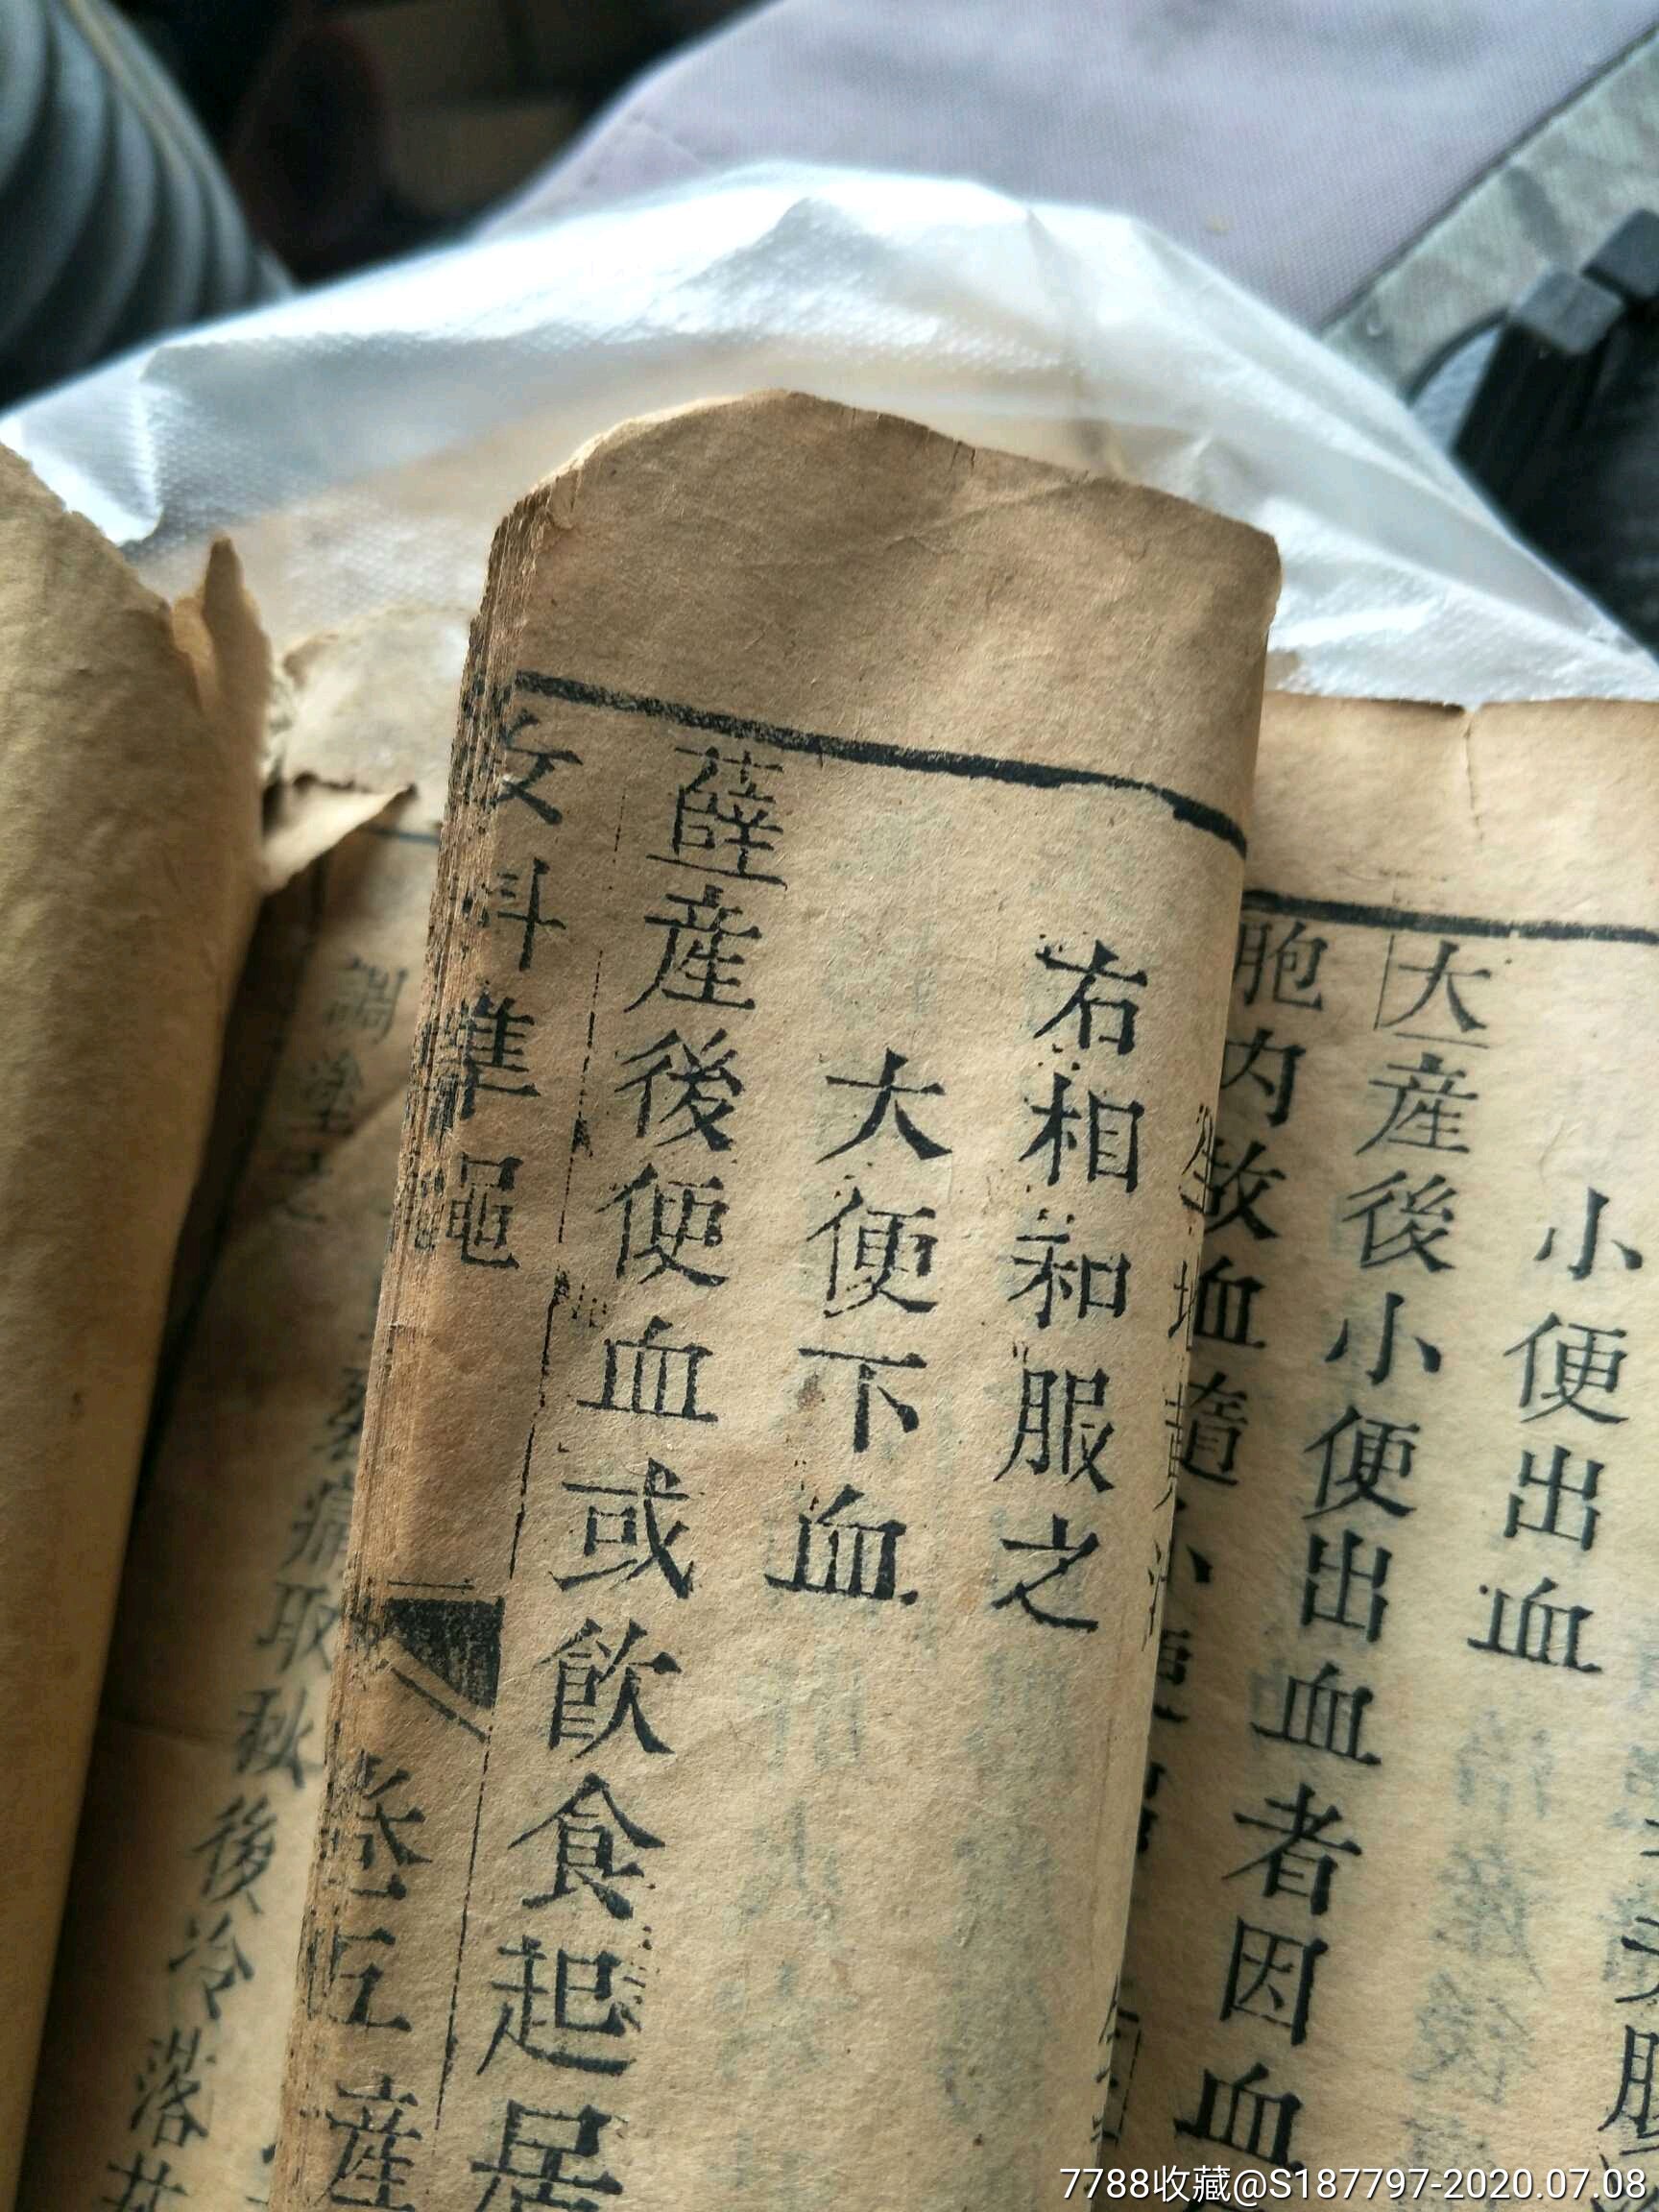 小便出血
大產後小便出血者因血
胞内故血隨小便
右相和服之
大便下血
薛產後便血或飲食起居
女科準繩 卷五產
調塗之
痛取秋後冷落
7788收藏@S187797-2020.07.08